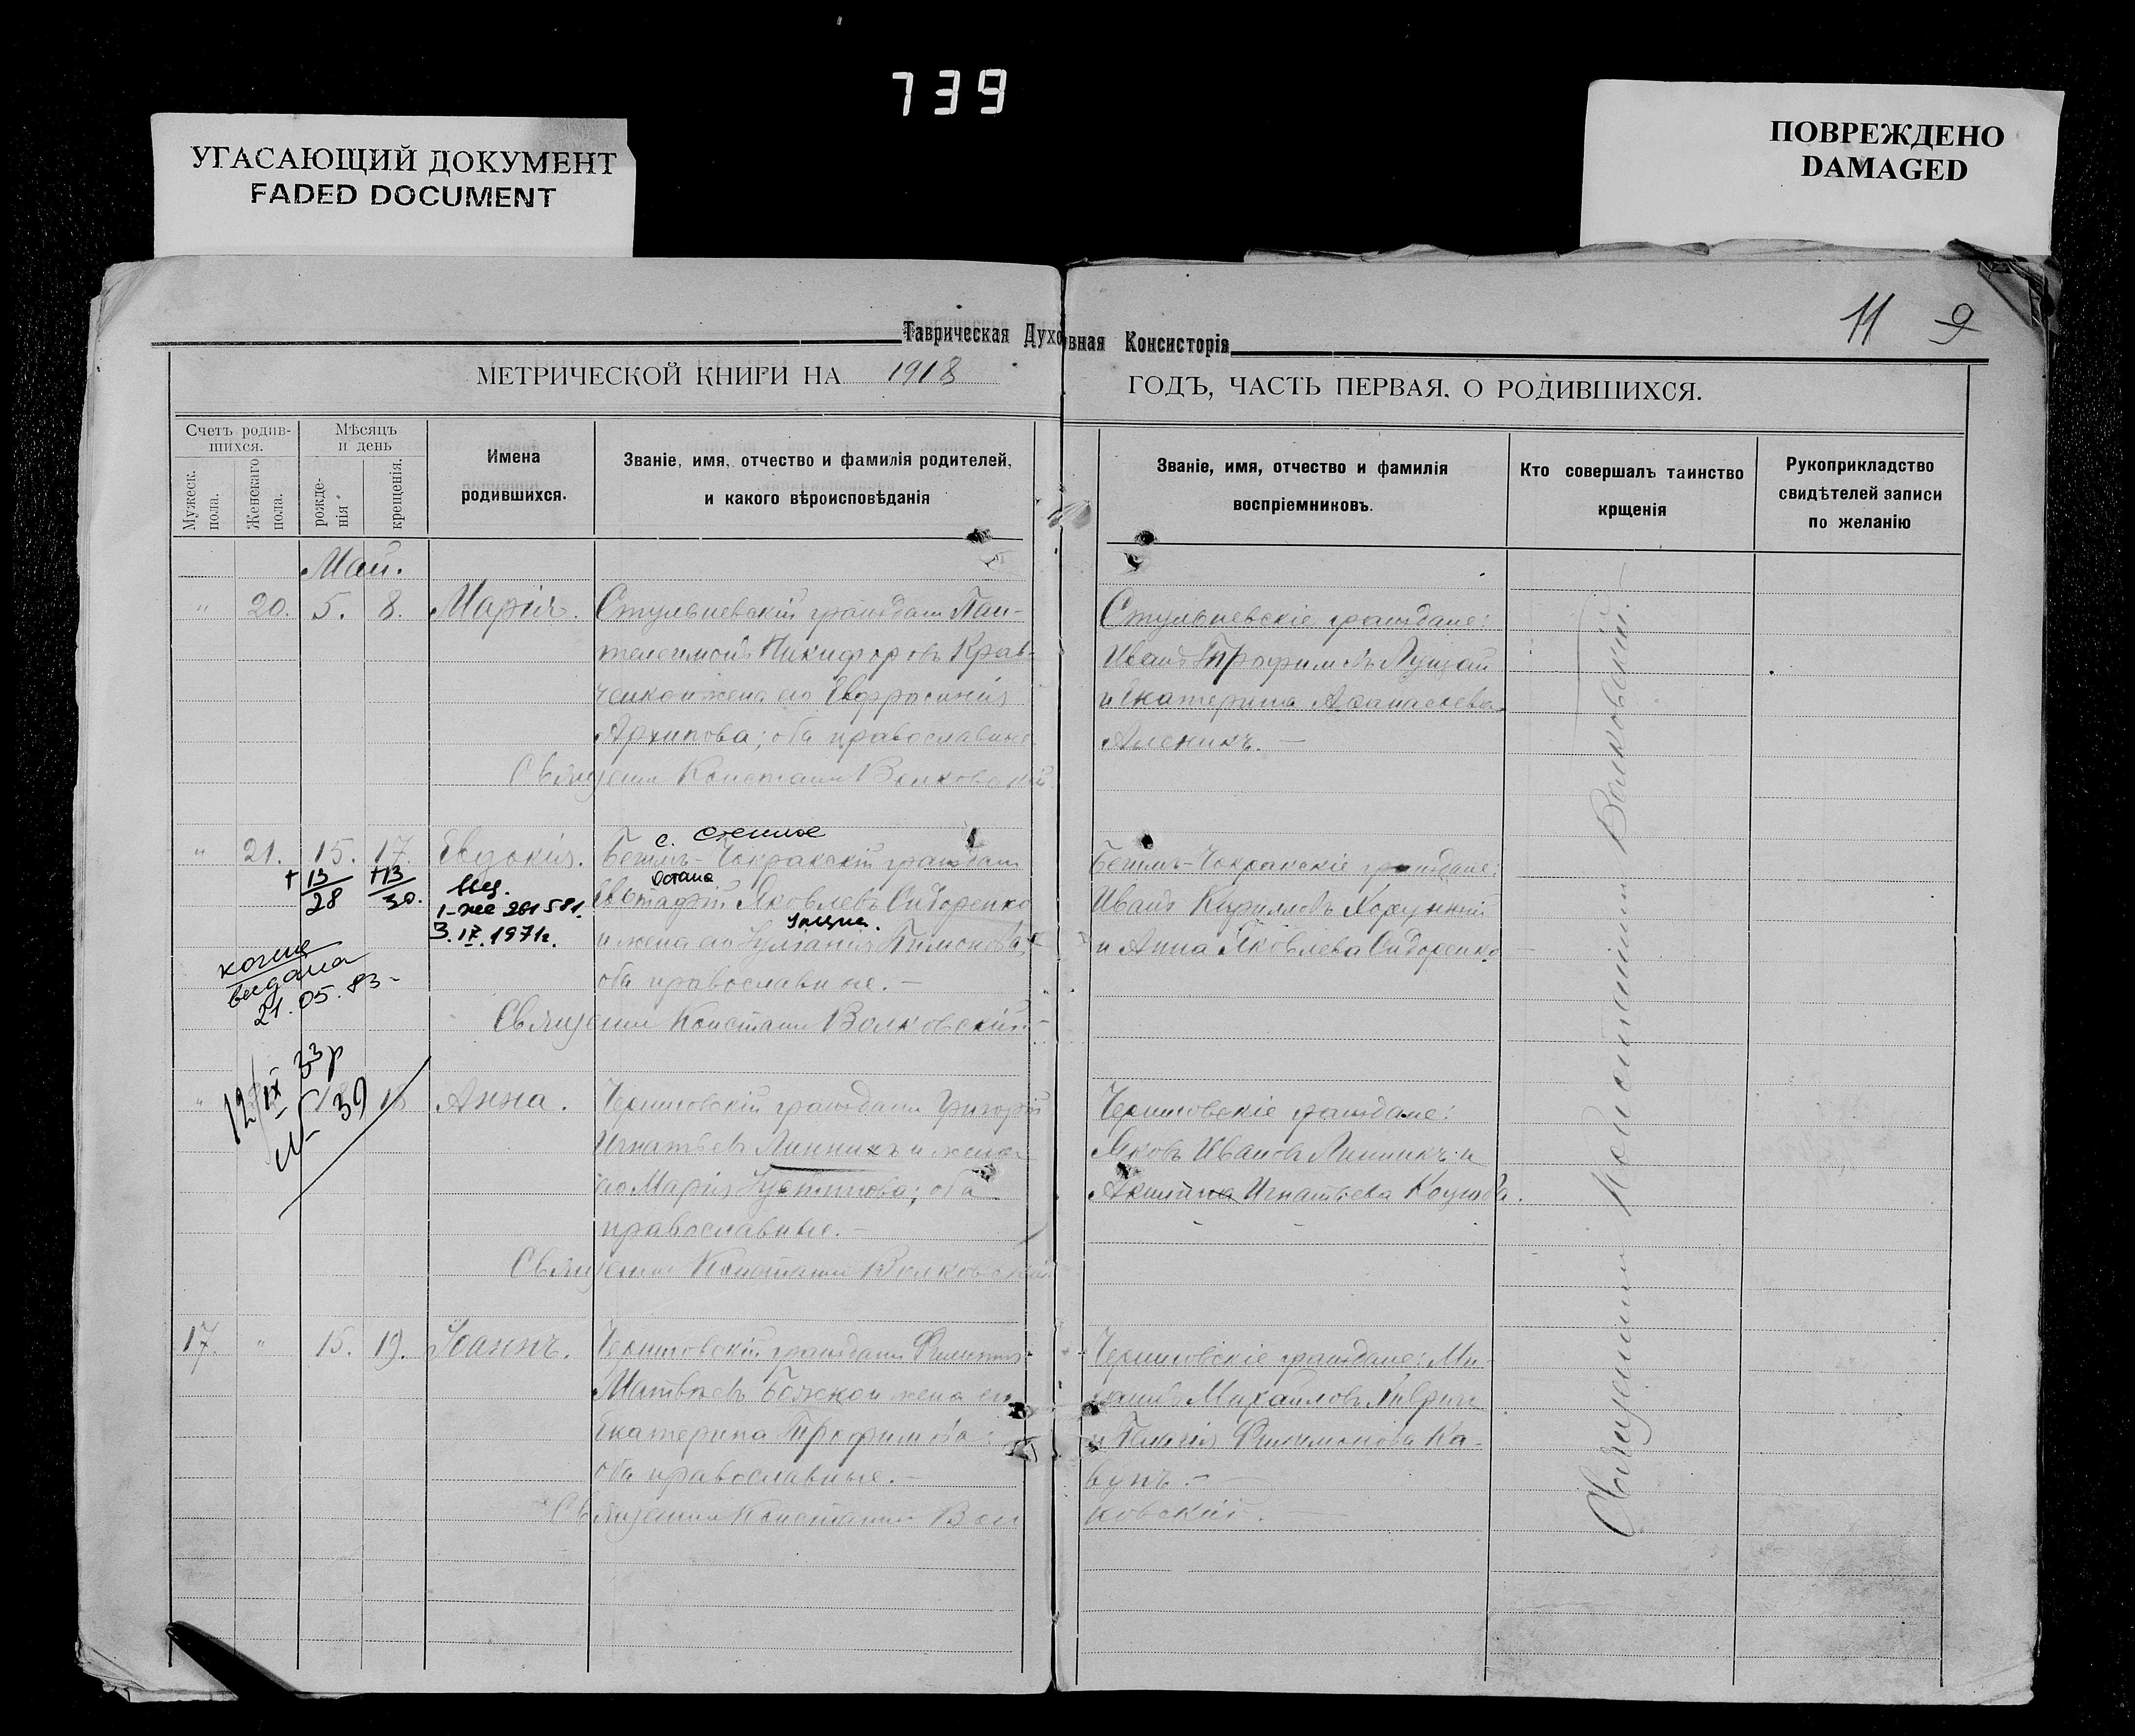 739
УГАСАЮЩИЙ ДОКУМЕНТ
FADED DOCUMENT
ПОВРЕЖДЕНО
DAMAGED
11 9
Таврическая Духовная Консисторія
МЕТРИЧЕСКОЙ КНИГИ НА 1918 ГОДЪ, ЧАСТЬ ПЕРВАЯ, О РОДИВШИХСЯ.
Счетъ родив-
шихся.
Мужеск. пола.
Женскаго пола.
Мѣсяцъ
и день
рожде-
нія
крещенія.
Имена
родившихся.
Званіе, имя, отчество и фамилія родителей,
и какого вѣроисповѣданія
Званіе, имя, отчество и фамилія
воспріемниковъ.
Кто совершалъ таинство
крщенія
Рукоприкладство
свидѣтелей записи
по желанію
Май.
" 20. 5. 8. Марія.
Стульневскій гражданин Пан-
телеимонъ Никифоровъ Крав-
ченко и жена его Евфросинія
Архипова; оба православные
Священник Константин Волковскій
Стульневскіе граждане:
Иванъ Трофимовъ
и Екатерина Афанасьева
Аленикъ. —
" 21. 15. 17. Евдокія.
+13 +13
28 30.
1-же 281581.
3.IV.1971г.
копия
выдана
21.05.83-
с. Степное
Бегимъ-Чокракскій гражданин
Остапа
Евстафій Яковлевъ Сидоренко
и жена его Іуліанія Тимонова,
оба православные. —
Священник Константин Волковскій. —
Бегимъ-Чокракскіе граждане:
Иванъ Кирилловъ Хорунжій
и Анна Яковлева Сидоренко
12/IX 33р
№ 39
" 18 18 Анна.
Черниговскій гражданин Григорій
Игнатьевъ Линникъ и жена
его Марія Іустинова; оба
православные. —
Священник Константин Волковскій
Черниговскіе граждане:
Яковъ Ивановъ Линникъ и
Акилина Игнатьева
17. " 15. 19. Іоаннъ.
Черниговскій гражданин Филиппъ
Матвѣевъ Божко и жена его
Екатерина Трофимова:
оба православные. —
Священник Константин Вол
ковскій. —
Черниговскіе граждане: Ми-
хаилъ Михайловъ
и Филимонова Ка-
вунъ. —
Священник Константин Волковскій. —